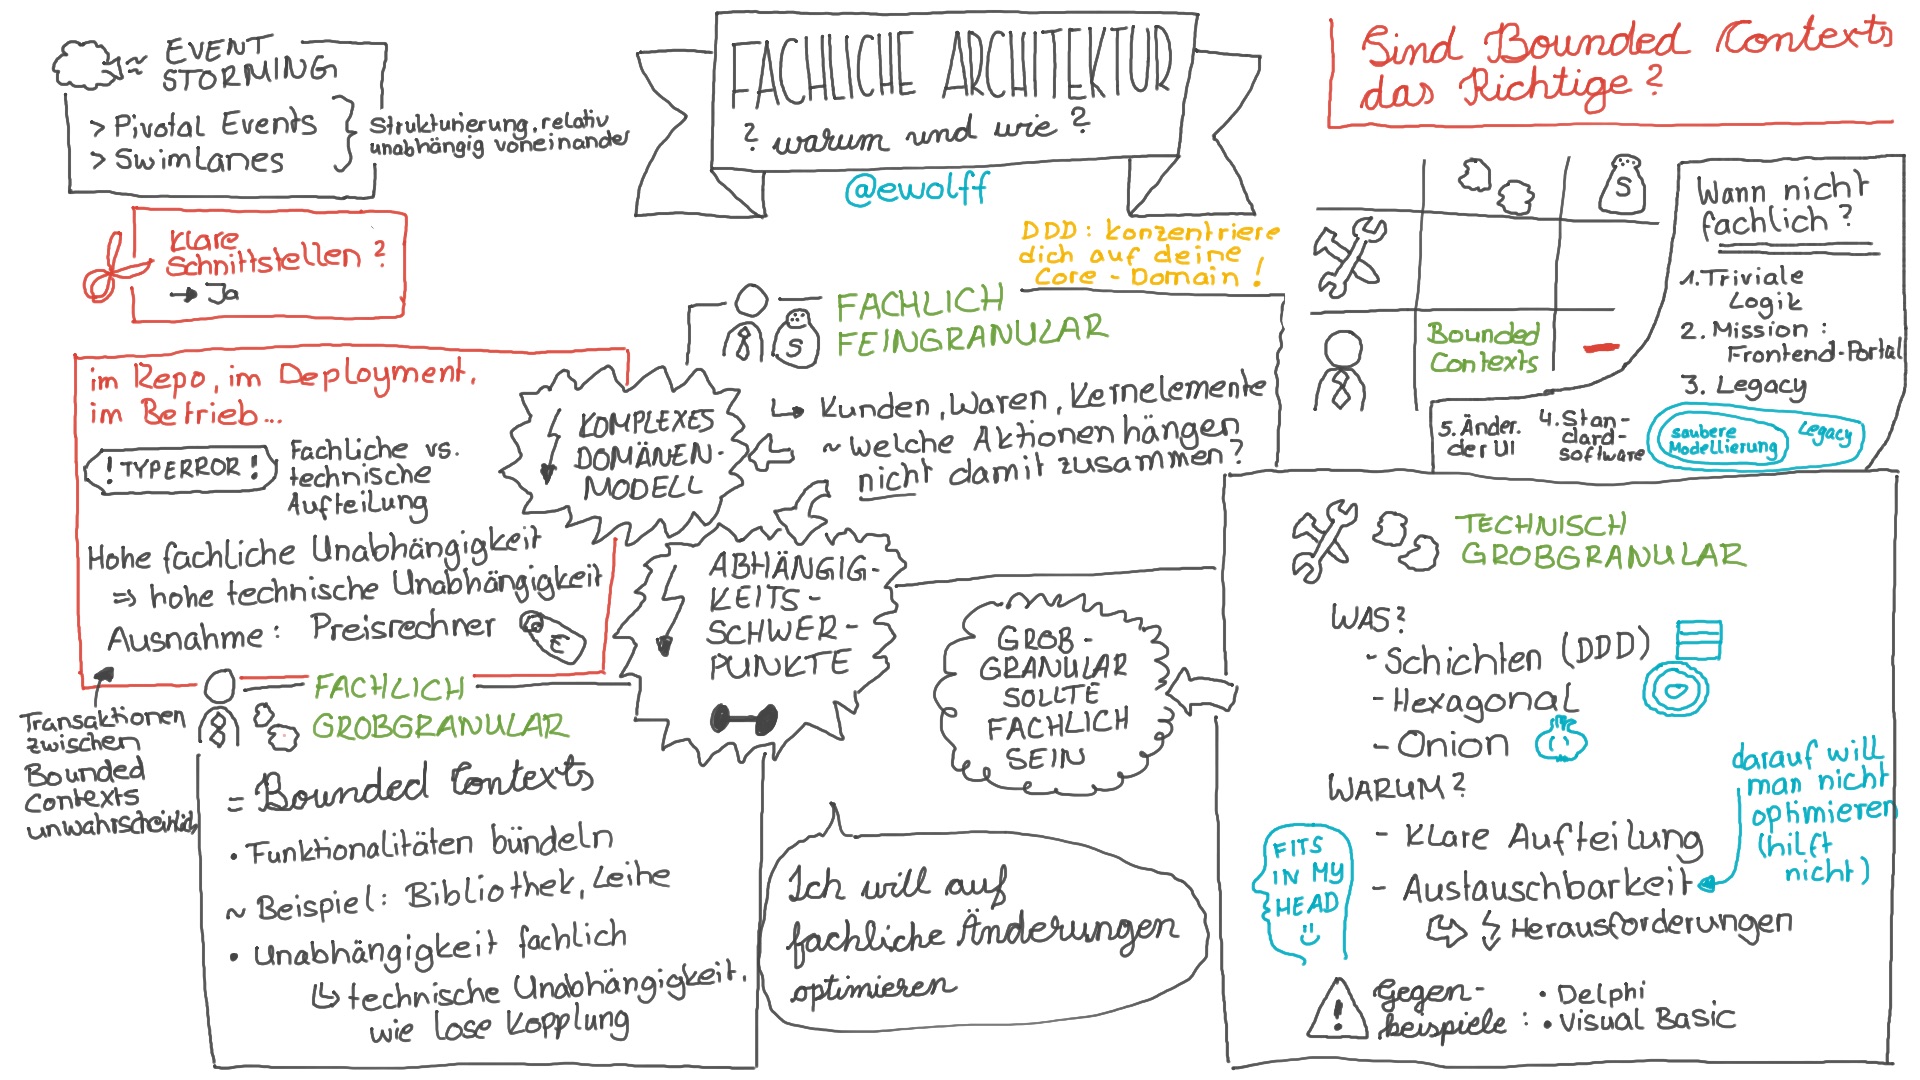 EVENT
STORMING
> Pivotal Events
> Swimlanes
Strukturierung, relativ
unabhängig voneinander
FACHLICHE ARCHITEKTUR
? warum und wie ?
@ewolff
Sind Bounded Contexts
das Richtige ?
Klare
Schnittstellen ?
→ Ja
DDD : konzentriere
dich auf deine
Core - Domain !
S
Bounded
Contexts
Wann nicht
fachlich ?
1. Triviale
Logik
2. Mission :
Frontend-Portal
3. Legacy
4. Stan-
dard-
software
5. Änder.
der UI
saubere
Modellierung
Legacy
S
FACHLICH
FEINGRANULAR
↳ Kunden, Waren, Kernelemente
~ welche Aktionen hängen
nicht damit zusammen ?
KOMPLEXES
DOMÄNEN-
MODELL
im Repo, im Deployment,
im Betrieb...
! TYPERROR !
Fachliche vs.
technische
Aufteilung
Hohe fachliche Unabhängigkeit
⇒ hohe technische Unabhängigkeit
Ausnahme : Preisrechner
€
ABHÄNGIG-
KEITS-
SCHWER-
PUNKTE
Transaktionen
zwischen
Bounded
Contexts
unwahrscheinlich
FACHLICH
GROBGRANULAR
= Bounded Contexts
• Funktionalitäten bündeln
~ Beispiel : Bibliothek, Leihe
• Unabhängigkeit fachlich
↳ technische Unabhängigkeit,
wie lose Kopplung
GROB-
GRANULAR
SOLLTE
FACHLICH
SEIN
Ich will auf
fachliche Änderungen
optimieren
TECHNISCH
GROBGRANULAR
WAS?
- Schichten (DDD)
- Hexagonal
- Onion
WARUM?
- Klare Aufteilung
- Austauschbarkeit
Herausforderungen
darauf will
man nicht
optimieren
(hilft
nicht)
FITS
IN MY
HEAD
!
Gegen-
beispiele :
• Delphi
• Visual Basic